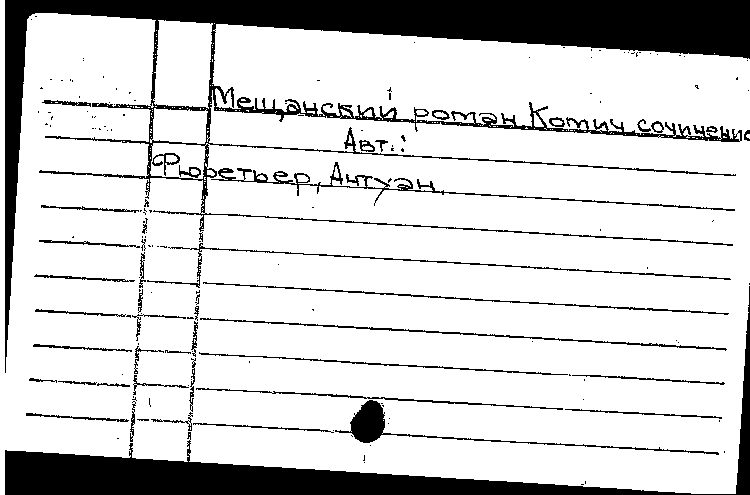 Мещанский роман. Комич. сочинение
Авт.:
Фюретьер, Антуан.